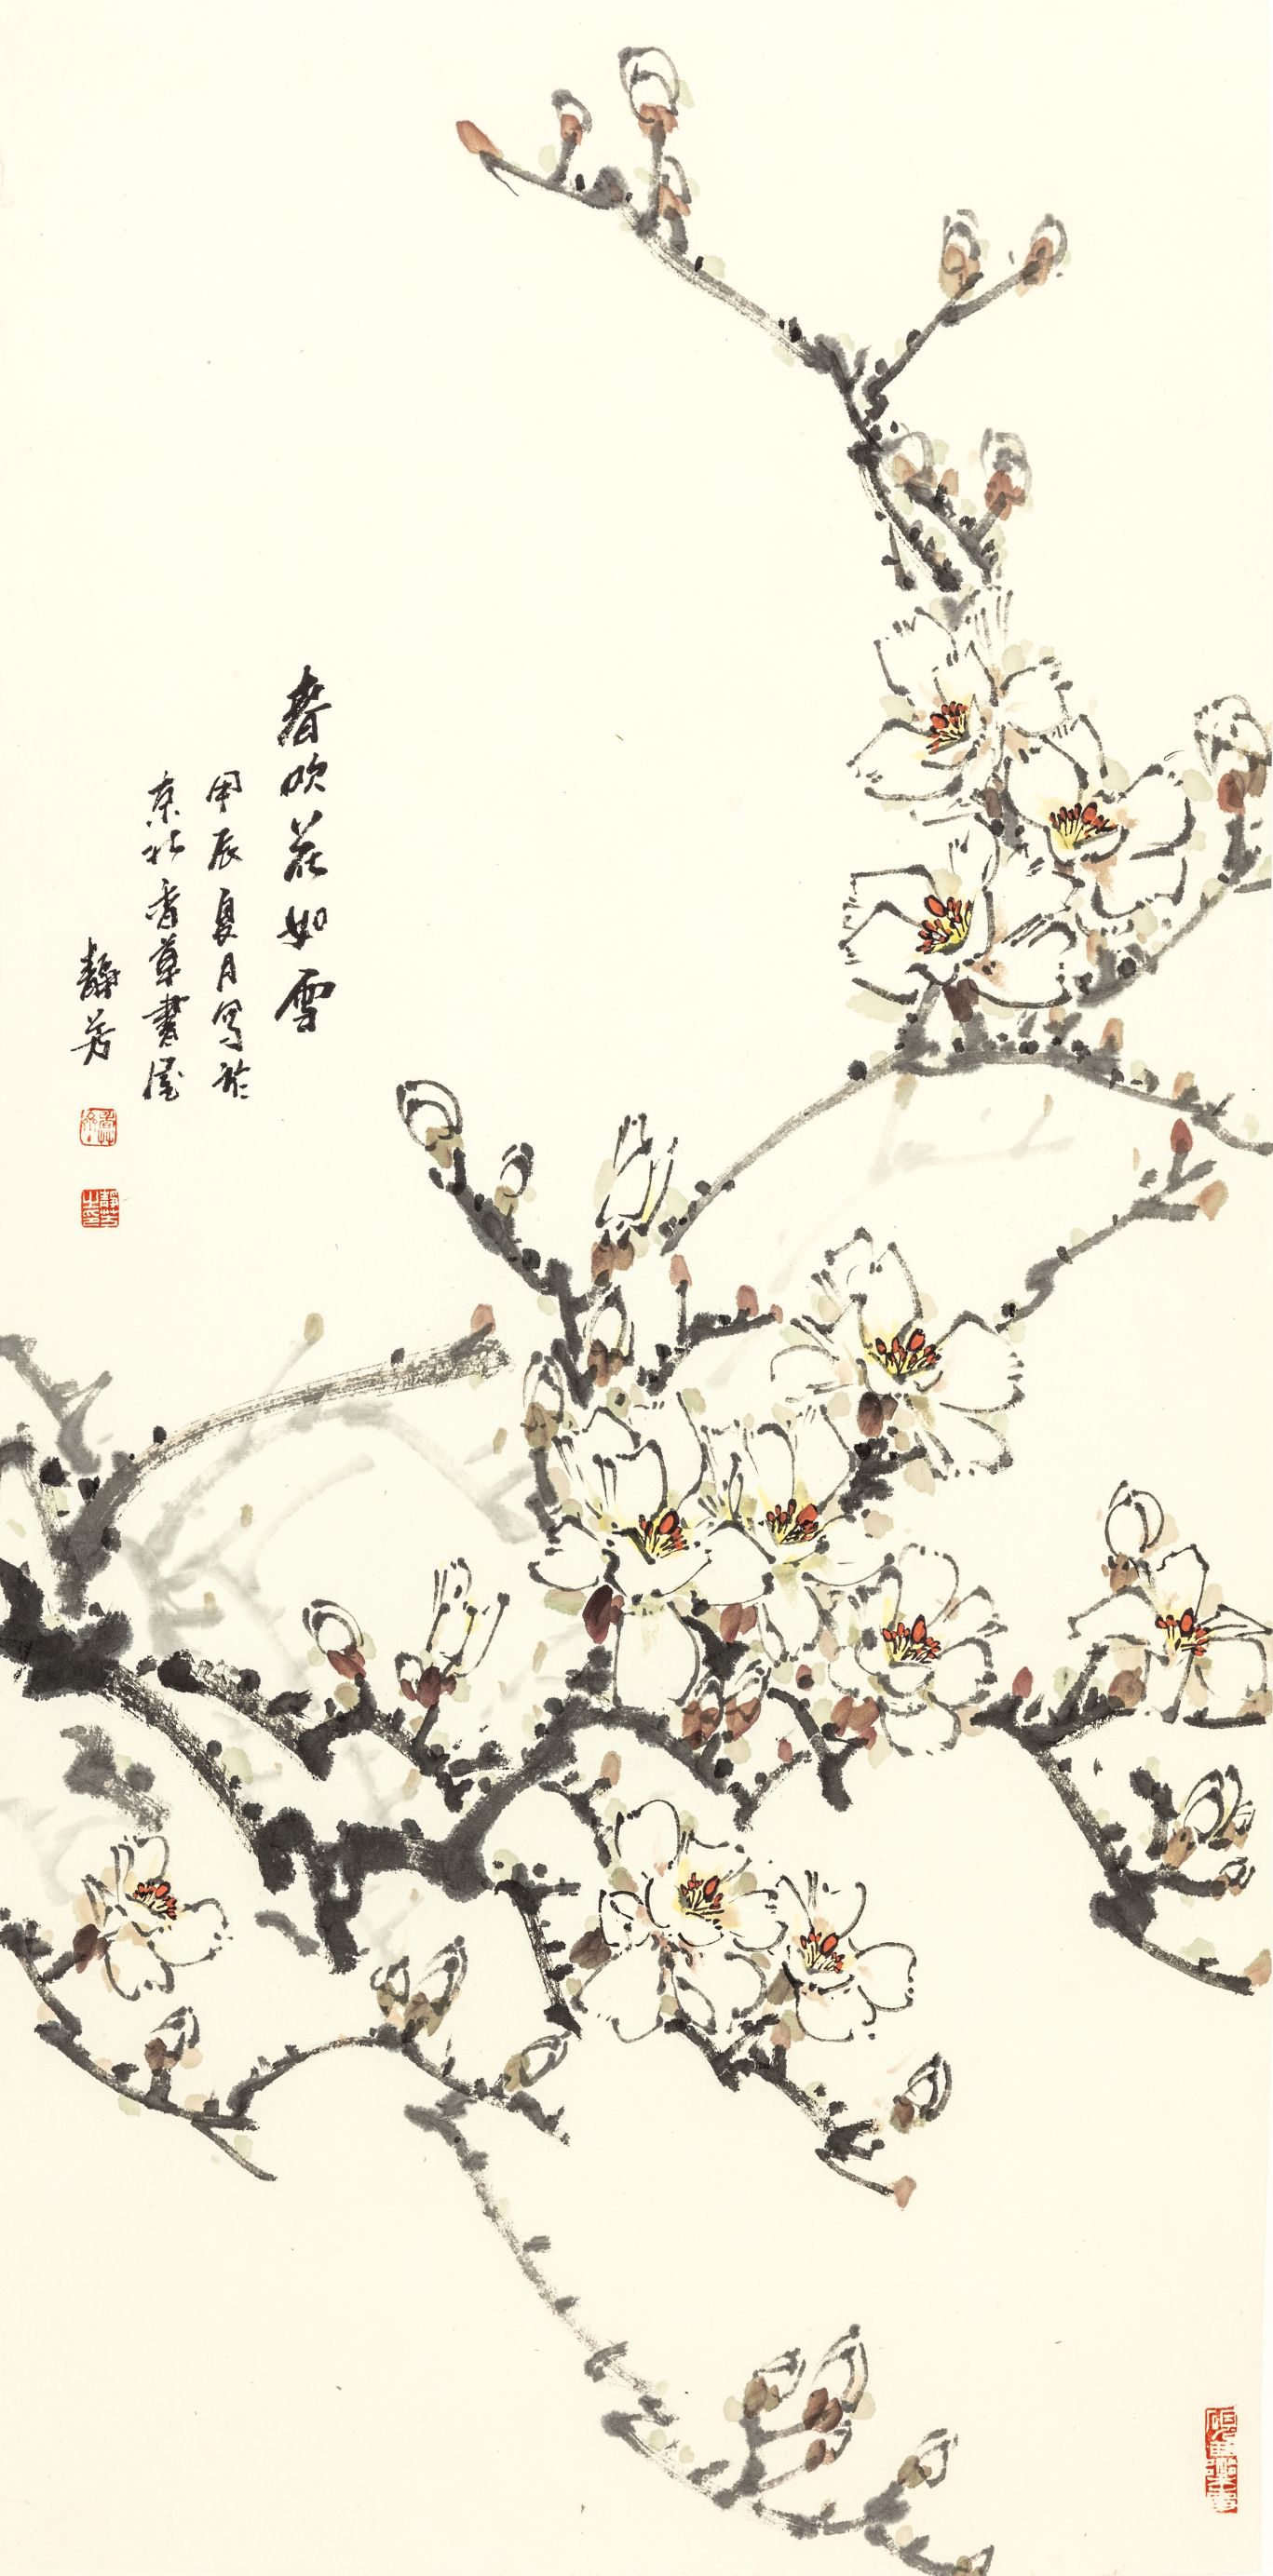 春吹花如雪
甲辰夏月写於
京北香草書屋
靜芳